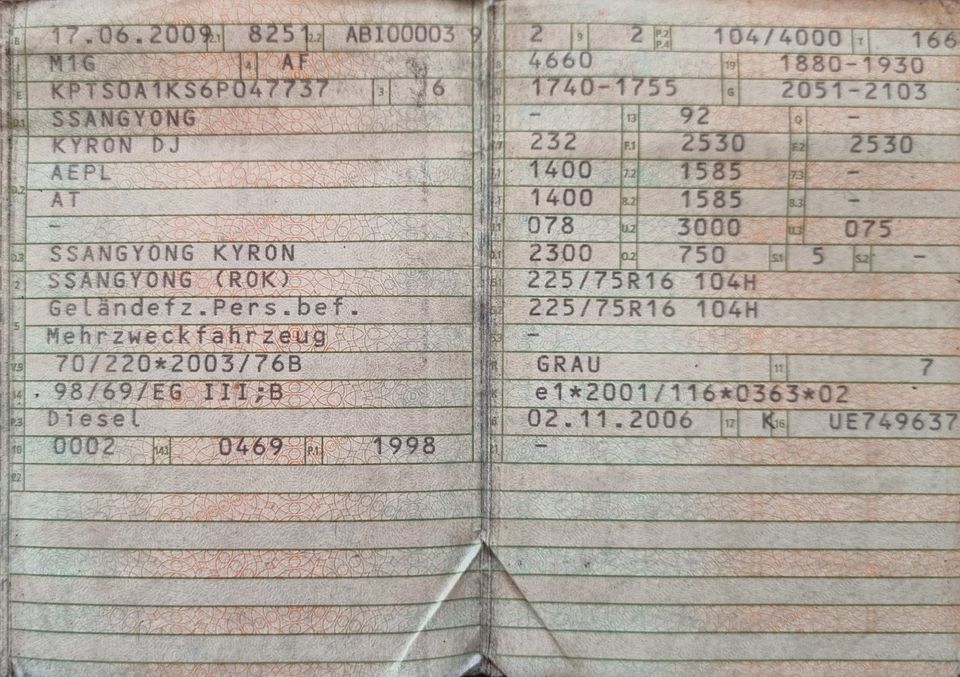 B 17.06.2009 2.1 8251 2.2 ABI00003 9
J M1G 4 AF
E KPTS0A1KS6P047737 3 6
D.1 SSANGYONG
KYRON DJ
AEPL
D.2 AT
-
D.3 SSANGYONG KYRON
2 SSANGYONG (ROK)
Geländefz.Pers.bef.
5 Mehrzweckfahrzeug
V.9 70/220*2003/76B
14 98/69/EG III;B
P.3 Diesel
10 0002 14.1 0469 P.1 1998
22
2 9 2 P.2 P.4 104/4000 T 166
18 4660 19 1880-1930
20 1740-1755 G 2051-2103
12 - 13 92 Q -
V.7 232 F.1 2530 F.2 2530
7.1 1400 7.2 1585 7.3 -
8.1 1400 8.2 1585 8.3 -
U.1 078 U.2 3000 U.3 075
O.1 2300 O.2 750 S.1 5 S.2 -
15.1 225/75R16 104H
15.2 225/75R16 104H
15.3 -
R GRAU 11 7
K e1*2001/116*0363*02
6 02.11.2006 17 K 16 UE749637
21 -